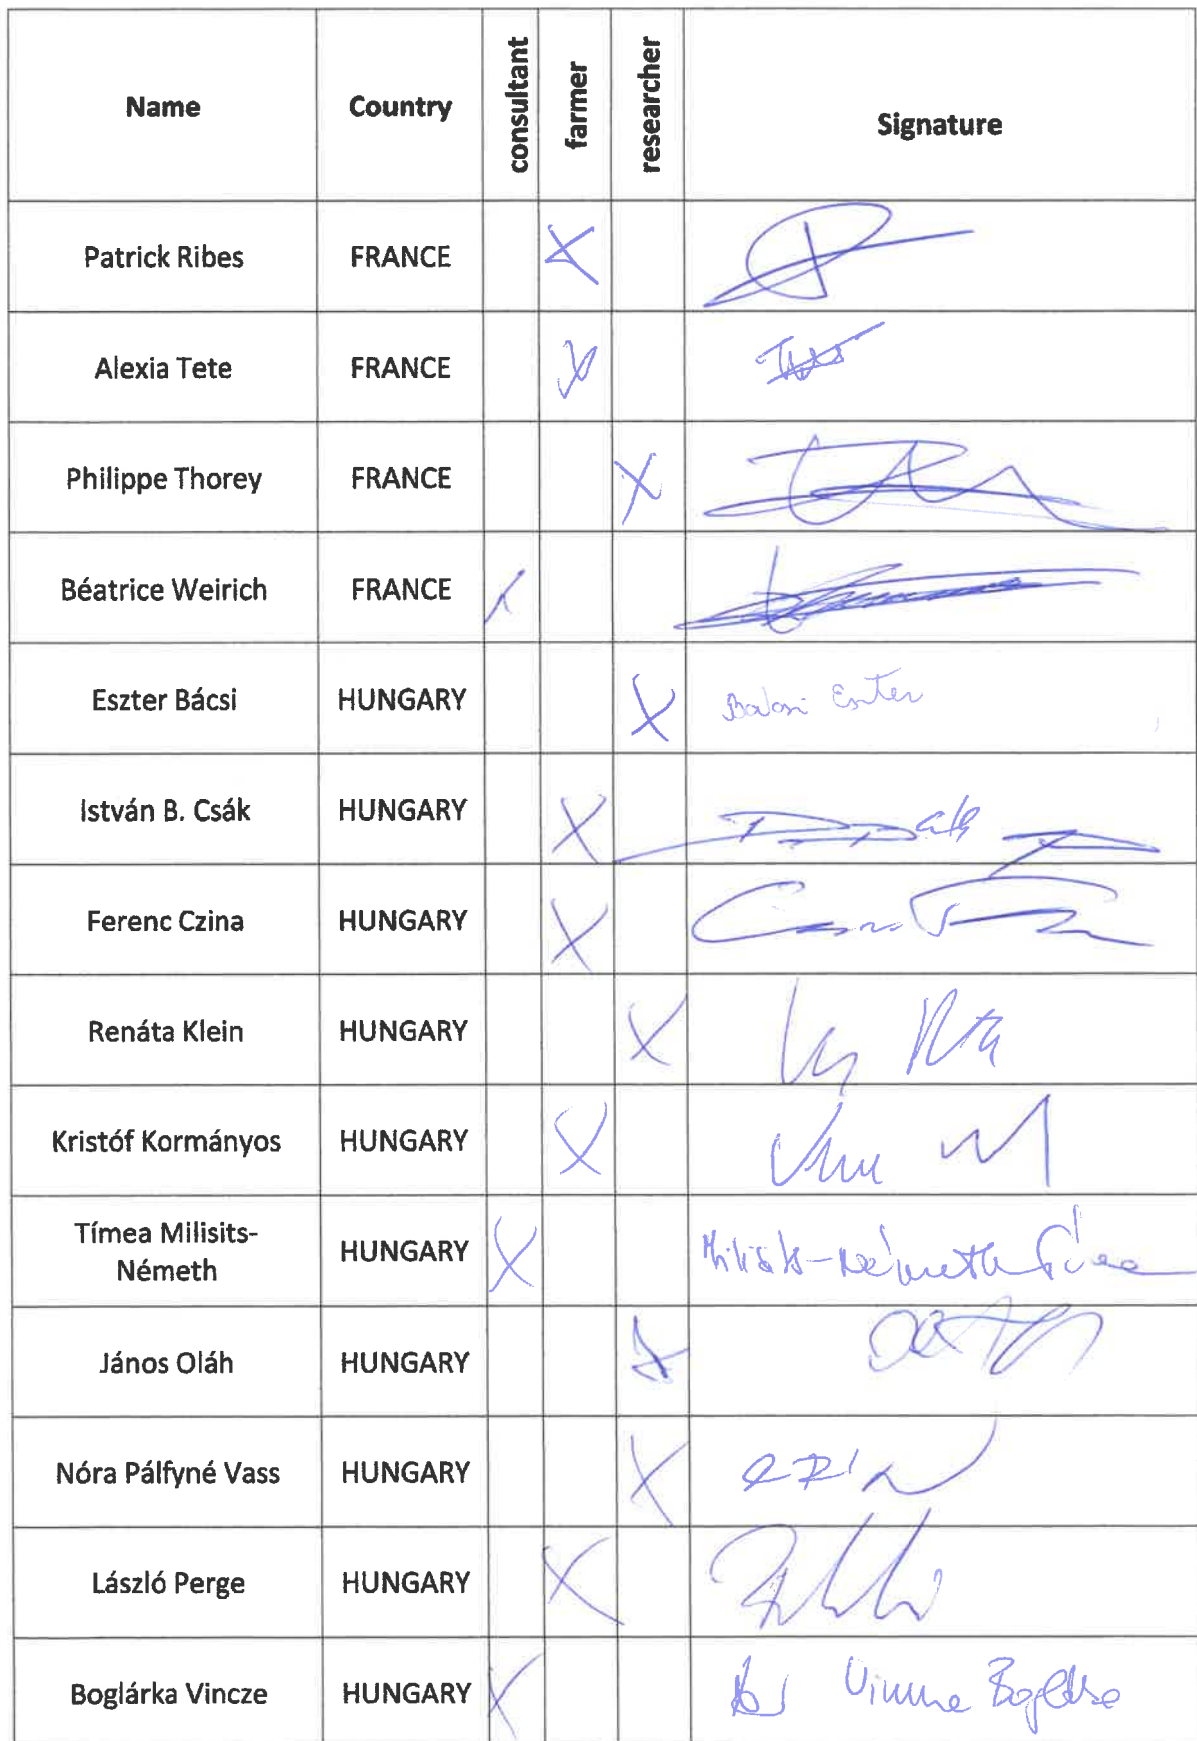 Name Country consultant farmer researcher Signature
Patrick Ribes FRANCE X
Alexia Tete FRANCE X
Philippe Thorey FRANCE X
Béatrice Weirich FRANCE X
Eszter Bácsi HUNGARY X Bácsi Eszter
István B. Csák HUNGARY X
Ferenc Czina HUNGARY X
Renáta Klein HUNGARY X
Kristóf Kormányos HUNGARY X
Tímea Milisits-
Németh HUNGARY X Milisits-Németh Tímea
János Oláh HUNGARY X
Nóra Pálfyné Vass HUNGARY X
László Perge HUNGARY X
Boglárka Vincze HUNGARY X Vincze Boglárka